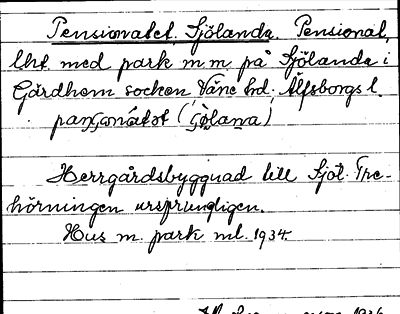 Pensionatet Sjölanda. Pensionat,
lht med park m m på Sjölanda i
Gärdhem socken Väne hd. Älfsborgs l.
Herrgårdsbyggnad till Sjöl. Tre-
hörningen ursprungligen.
Hus m. park ml. 1934.